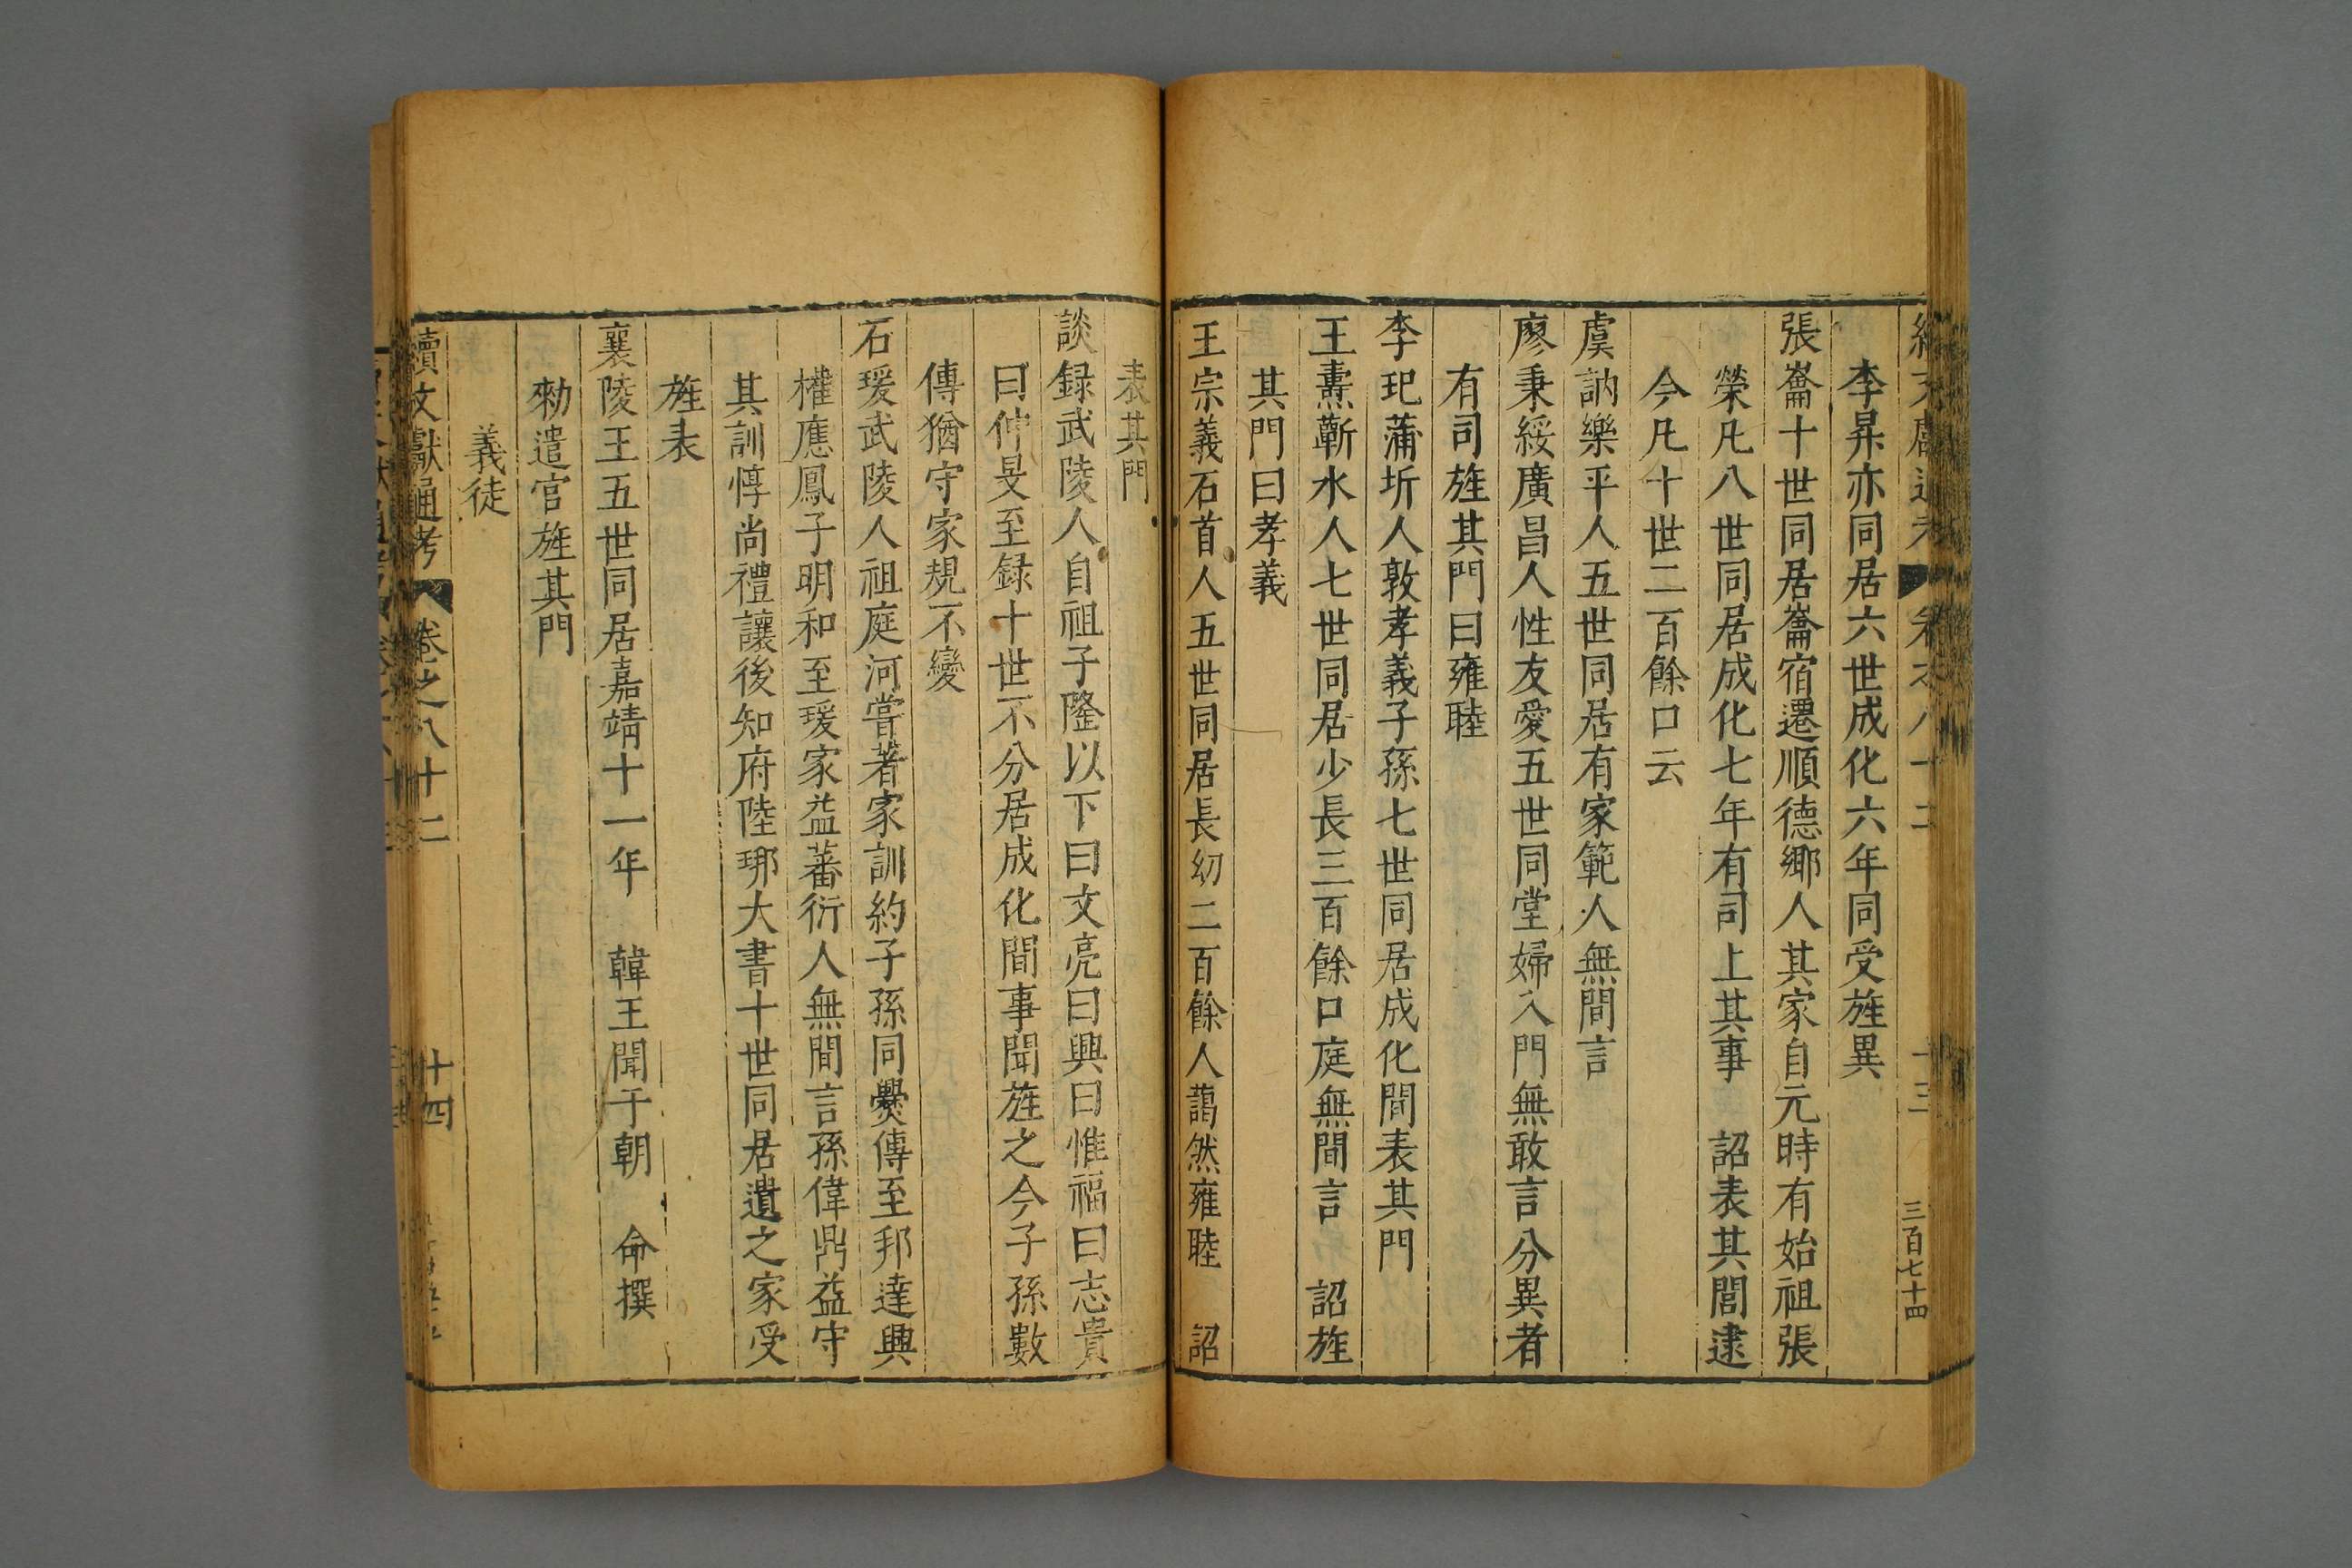 李昇亦同居六世成化六年同受旌異
張崙十世同居崙宿遷順德鄉人其家自元時有始祖張
榮凡八世同居成化七年有司上其事　詔表其閭逮
今凡十世二百餘口云
虞訥樂平人五世同居有家範人無間言
廖秉綏廣昌人性友愛五世同堂婦入門無敢言分異者
有司旌其門曰雍睦
李玘蒲圻人敦孝義子孫七世同居成化間表其門
王燾蘄水人七世同居少長三百餘口庭無間言　詔旌
其門曰孝義
王宗義石首人五世同居長幼二百餘人藹然雍睦　詔
表其門
談録武陵人自祖子隆以下曰文亮曰興曰惟福曰志貴
曰仲旻至録十世不分居成化間事聞旌之今子孫數
傳猶守家規不變
石瑗武陵人祖庭河嘗著家訓約子孫同爨傳至邦達興
權應鳳子明和至瑗家益蕃衍人無間言孫偉鼎益守
其訓惇尚禮讓後知府陸珋大書十世同居遺之家受
旌表
襄陵王五世同居嘉靖十一年　韓王聞于朝　命撰
勑遣官旌其門
義徒
續文獻通考　卷之八十二　十四
三百七十四